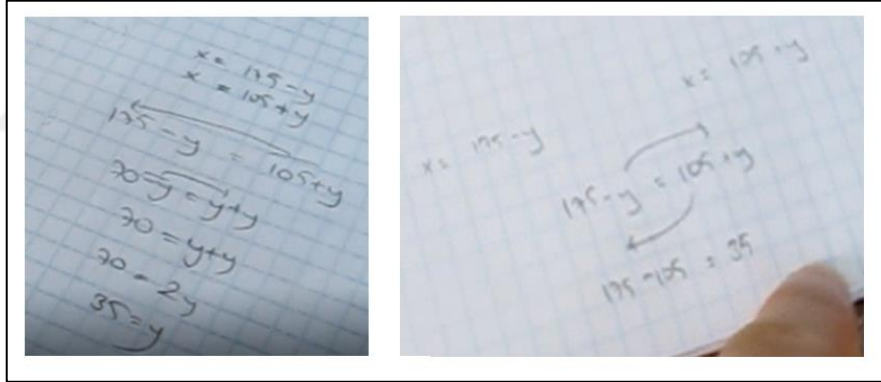 x = 175 - y
x = 105 + y
175 - y = 105 + y
70 - y = y + y
70 = y + y
70 = 2y
35 = y
x = 105 + y
x = 175 - y
175 - y = 105 + y
175 - 105 = 35